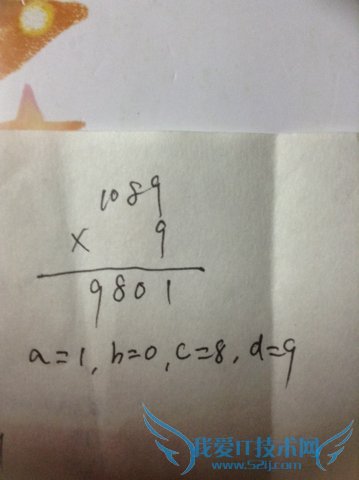 1089
× 9
9801
a=1, b=0, c=8, d=9
我爱IT技术网
www.52ij.com